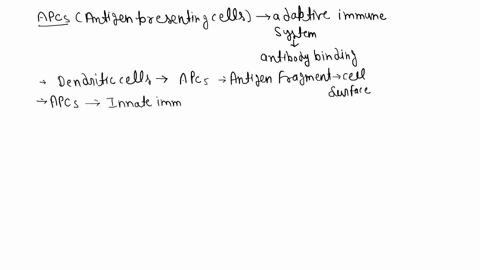 APCs (Antigen presenting cells) → adaptive immune
System
↓
antibody binding
→ Dendritic cells → APCs → Antigen Fragment → cell
Surface
→ APCs → Innate imm